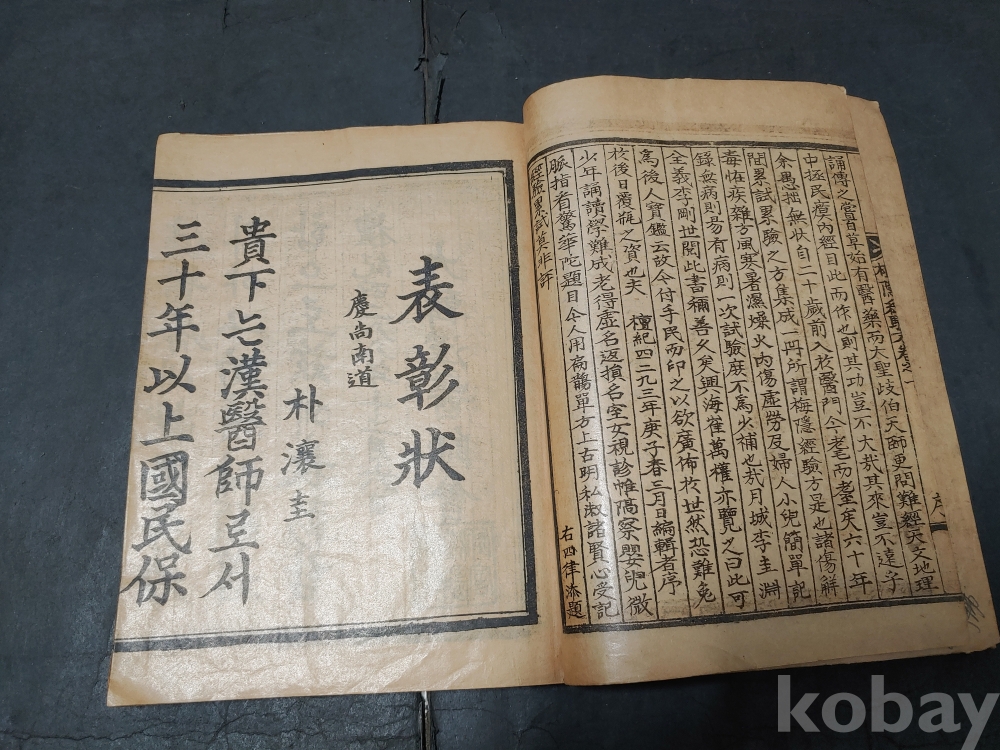 誦傳之嘗百草始有醫藥而大聖歧伯天師更問難經天文地理
中拯民瘼內經目此而作也則其功豈不大㦲其來豈不遠乎
余愚拙無狀自二十歲前入於醫門今老而耋矣六十年
閱畧試累驗之方集成一冊所謂梅隱經驗方是也諸傷解
毒恠疾雜方風寒暑濕燥火內傷虛勞及婦人小兒簡單記
錄無病則昜有病則一次試驗庭不爲少補也㦲月城李圭淵
全義李剛世閱此書稱善久矣興海崔萬權亦覽之曰此可
爲後人寶鑑云故今付手民而印之以欲廣佈於世然恐難免
於後日覆瓿之資也夫 檀紀四二九三年庚子春三月日編輯者序
少年誦讀學難成老得虛名返損名室女視診帷隔察嬰兒微
脈指看驚華陀題目今人用扁鵲單方上古明私叔諸賢心受記
經驗累試莫非評
右四律添題
序
表彰狀
慶尚南道
朴瀼圭
貴下는漢醫師로서
三十年以上國民保
kobay